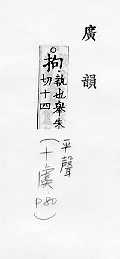 廣韻
拘執也舉朱
切十四
平聲
(十虞
P80)